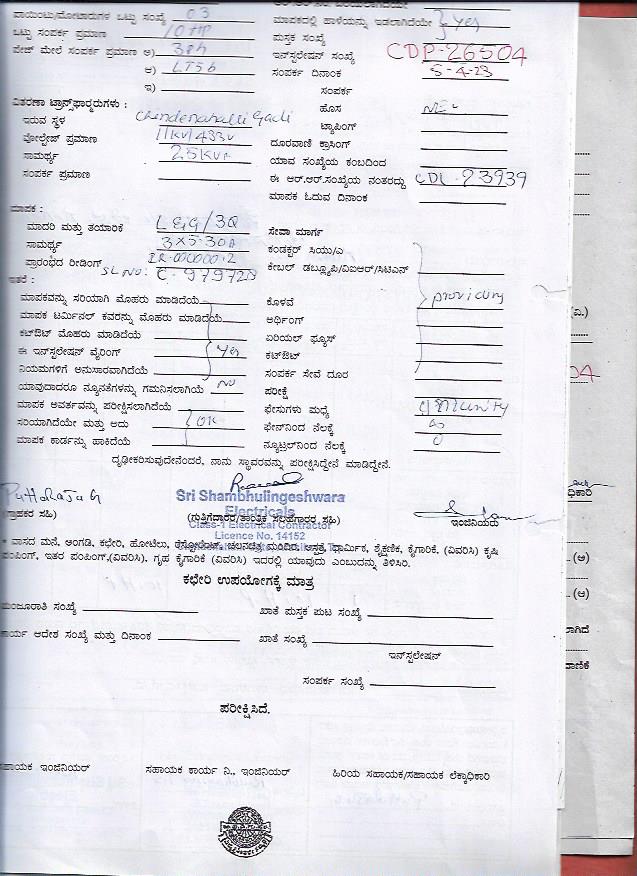 ಪಾಯಿಂಟು/ಮೋಟಾರುಗಳ ಒಟ್ಟು ಸಂಖ್ಯೆ 03
ಒಟ್ಟು ಸಂಪರ್ಕ ಪ್ರಮಾಣ 10 HP
ಪೇಜ್ ಮೇಲೆ ಸಂಪರ್ಕ ಪ್ರಮಾಣ ಅ) 3ph
ಆ) LT5b
ಇ)
ಮಾಪಕದಲ್ಲಿ ಹಾಳೆಯನ್ನು ಇಡಲಾಗಿದೆಯೇ } Yes
ಪುಸ್ತಕ ಸಂಖ್ಯೆ
ಇನ್‌ಸ್ಟಲೇಷನ್ ಸಂಖ್ಯೆ CDP-26504
ಸಂಪರ್ಕ ದಿನಾಂಕ 5-4-23
ಸಂಪರ್ಕ
ಹೊಸ
ಟ್ಯಾಪಿಂಗ್
ದೂರವಾಣಿ ಕ್ರಾಸಿಂಗ್
ಯಾವ ಸಂಖ್ಯೆಯ ಕಂಬದಿಂದ
ಈ ಆರ್.ಆರ್.ಸಂಖ್ಯೆಯ ನಂತರದ್ದು CDL-23939
ಮಾಪಕ ಓದುವ ದಿನಾಂಕ
ವಿತರಣಾ ಟ್ರಾನ್ಸ್‌ಫಾರ್ಮರುಗಳು :
ಇರುವ ಸ್ಥಳ
ವೋಲ್ಟೇಜ್ ಪ್ರಮಾಣ 11KV/433V
ಸಾಮರ್ಥ್ಯ 25KVA
ಸಂಪರ್ಕ ಪ್ರಮಾಣ
ಮಾಪಕ :
ಮಾದರಿ ಮತ್ತು ತಯಾರಿಕೆ L&G/3Q
ಸಾಮರ್ಥ್ಯ 3x5-30A
ಪ್ರಾರಂಭದ ರೀಡಿಂಗ್ IR-000000.2
SL NO: C-979720
ಇತರೆ :
ಮಾಪಕವನ್ನು ಸರಿಯಾಗಿ ಮೊಹರು ಮಾಡಿದೆಯೆ
ಮಾಪಕ ಟರ್ಮಿನಲ್ ಕವರನ್ನು ಮೊಹರು ಮಾಡಿದೆಯೆ
ಕಟ್‌ಔಟ್ ಮೊಹರು ಮಾಡಿದೆಯೆ
ಈ ಇನ್‌ಸ್ಟಲೇಷನ್ ವೈರಿಂಗ್ Yes
ನಿಯಮಗಳಿಗೆ ಅನುಸಾರವಾಗಿದೆಯೆ
ಯಾವುದಾದರೂ ನ್ಯೂನತೆಗಳನ್ನು ಗಮನಿಸಲಾಗಿಯೆ NO
ಮಾಪಕ ಅವರ್ತವನ್ನು ಪರೀಕ್ಷಿಸಲಾಗಿದೆಯೆ
ಸರಿಯಾಗಿದೆಯೇ ಮತ್ತು ಅದು OK
ಮಾಪಕ ಕಾರ್ಡನ್ನು ಹಾಕಿದೆಯೆ
ಸೇವಾ ಮಾರ್ಗ
ಕಂಡಕ್ಟರ್ ಸಿಯು/ಎ
ಕೇಬಲ್ ಡಬ್ಲ್ಯೂಪಿ/ವಿಐಆರ್/ಸಿಟಿಎನ್
ಕೊಳವೆ
ಅರ್ಥಿಂಗ್
ಏರಿಯಲ್ ಫ್ಯೂಸ್
ಕಟ್‌ಔಟ್
ಸಂಪರ್ಕ ಸೇವೆ ದೂರ
ಪರೀಕ್ಷೆ
ಫೇಸುಗಳು ಮಧ್ಯೆ
ಫೇಸ್‌ನಿಂದ ನೆಲಕ್ಕೆ
ನ್ಯೂಟ್ರಲ್‌ನಿಂದ ನೆಲಕ್ಕೆ
ದೃಢೀಕರಿಸುವುದೇನೆಂದರೆ, ನಾನು ಸ್ಥಾವರವನ್ನು ಪರೀಕ್ಷಿಸಿದ್ದೇನೆ ಮಾಡಿದ್ದೇನೆ.
Sri Shambhulingeshwara
Electricals
Class-1 Electrical Contractor
Licence No. 14152
(ಗ್ರಾಹಕರ ಸಹಿ) (ಗುತ್ತಿಗೆದಾರರ/ತಾಂತ್ರಿಕ ಸಲಹೆಗಾರರ ಸಹಿ) ಇಂಜಿನಿಯರು
* ವಾಸದ ಮನೆ, ಅಂಗಡಿ, ಕಛೇರಿ, ಹೋಟೆಲು, ರೆಸ್ಟೋರೆಂಟ್, ಚಲನಚಿತ್ರ ಮಂದಿರ, ಆಸ್ಪತ್ರೆ, ಧಾರ್ಮಿಕ, ಶೈಕ್ಷಣಿಕ, ಕೈಗಾರಿಕೆ, (ವಿವರಿಸಿ) ಕೃಷಿ
ಪಂಪಿಂಗ್, ಇತರ ಪಂಪಿಂಗ್,(ವಿವರಿಸಿ), ಗೃಹ ಕೈಗಾರಿಕೆ (ವಿವರಿಸಿ) ಇದರಲ್ಲಿ ಯಾವುದು ಎಂಬುದನ್ನು ತಿಳಿಸಿರಿ.
ಕಛೇರಿ ಉಪಯೋಗಕ್ಕೆ ಮಾತ್ರ
ಮಂಜೂರಾತಿ ಸಂಖ್ಯೆ ಖಾತೆ ಪುಸ್ತಕ ಪುಟ ಸಂಖ್ಯೆ
ಕಾರ್ಯ ಆದೇಶ ಸಂಖ್ಯೆ ಮತ್ತು ದಿನಾಂಕ ಖಾತೆ ಸಂಖ್ಯೆ
ಇನ್‌ಸ್ಟಲೇಷನ್
ಸಂಪರ್ಕ ಸಂಖ್ಯೆ
ಪರೀಕ್ಷಿಸಿದೆ.
ಸಹಾಯಕ ಇಂಜಿನಿಯರ್ ಸಹಾಯಕ ಕಾರ್ಯ ನಿ., ಇಂಜಿನಿಯರ್ ಹಿರಿಯ ಸಹಾಯಕ/ಸಹಾಯಕ ಲೆಕ್ಕಾಧಿಕಾರಿ